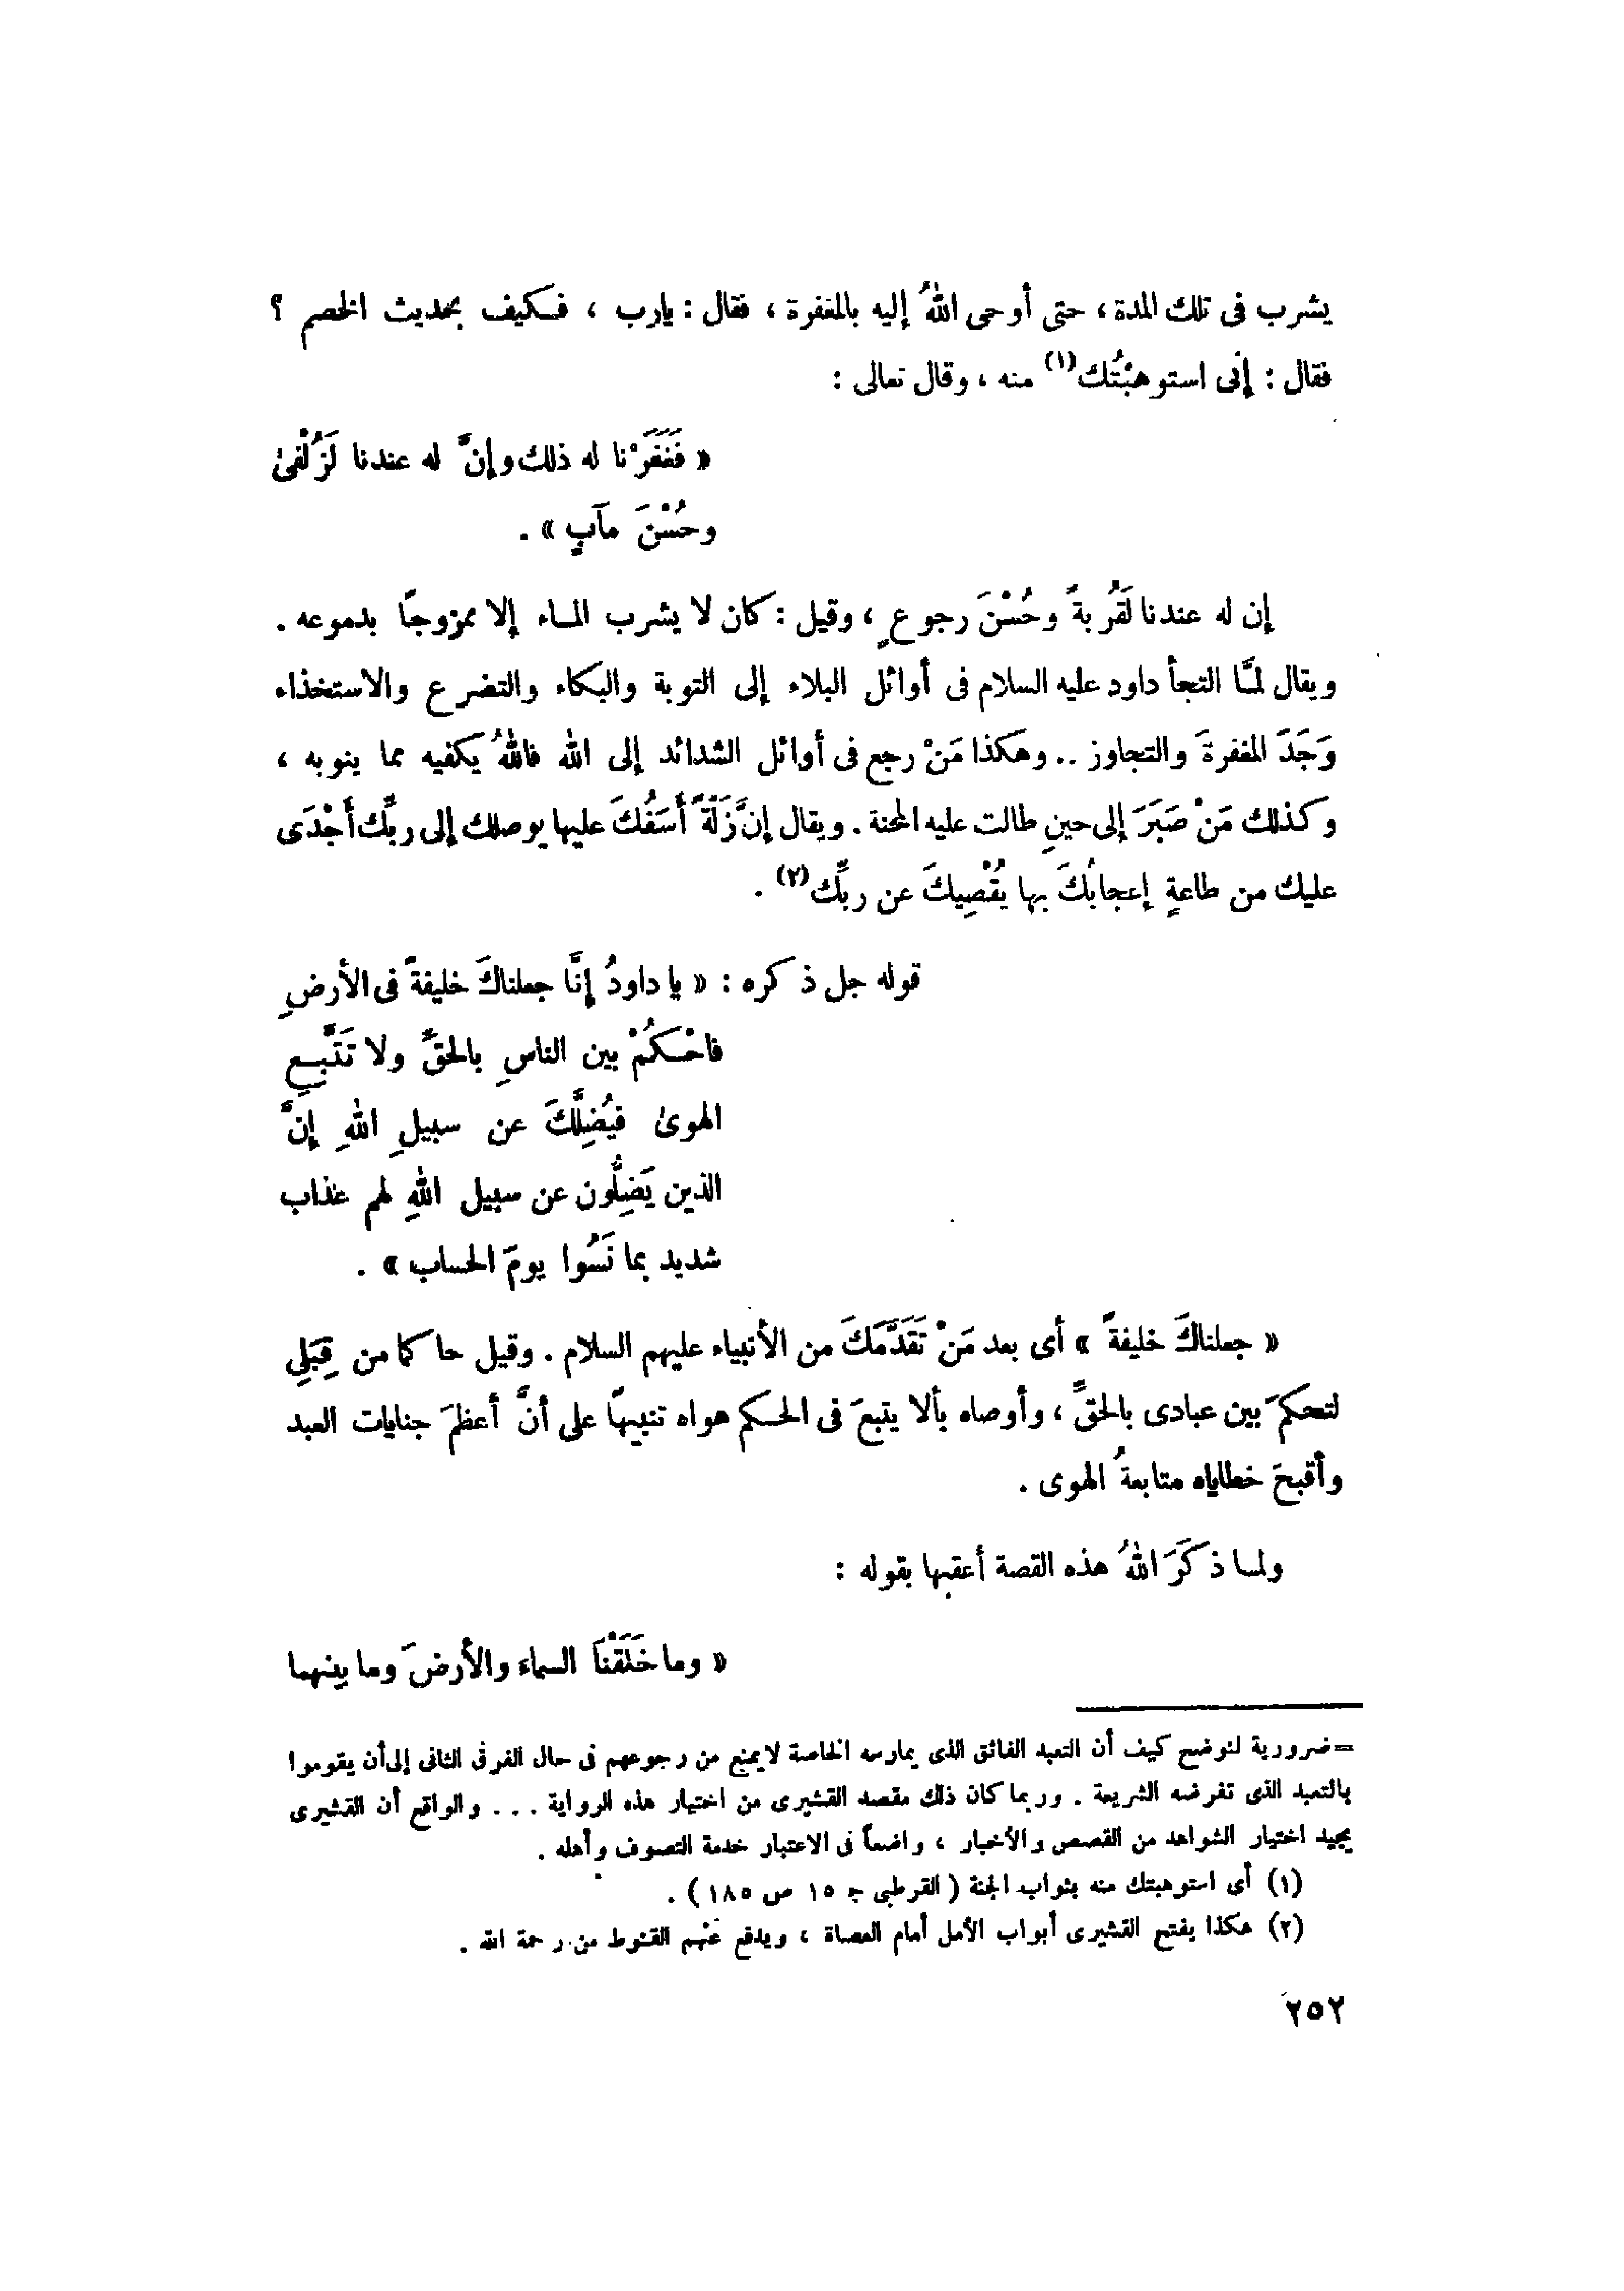 يشرب فى تلك المدة ، حتى أوحى اللهُ إليه بالمغفرة ، فقال : يارب ، فكيف بحديث الخصم ؟
فقال : إنى استوهبْتُك(١) منه ، وقال تعالى :
« فَغَفَرْنا له ذلك وإنَّ له عندنا لَزُلْفىٰ
وحُسْنَ مآبٍ » .
إن له عندنا لَقُربةً وحُسْنَ رجوعٍ ، وقيل : كان لا يشرب الماء إلا ممزوجاً بدموعه .
ويقال لمَّا التجأ داود عليه السلام فى أوائل البلاء إلى التوبة والبكاء والتضرع والاستخذاء
وَجَدَ المغفرةَ والتجاوز .. وهكذا مَنْ رجع فى أوائل الشدائد إلى الله فاللهُ يكفيه مما ينوبه ،
وكذلك مَنْ صَبَرَ إلى حينٍ طالت عليه المحنة . ويقال إنَّ زَلَّةً أَسَفُكَ عليها يوصلك إلى ربِّك أَجْدَى
عليك من طاعةٍ إعجابُكَ بها يُقْصِيكَ عن ربِّك(٢) .
قوله جل ذكره : « يا داودُ إنَّا جعلناكَ خليفةً فى الأرضِ
فاحْكُمْ بين الناسِ بالحقِّ ولا تَتَّبِعِ
الهوىٰ فيُضِلَّكَ عن سبيلِ اللهِ إنَّ
الذين يَضِلُّون عن سبيل اللهِ لهم عذاب
شديد بما نَسُوا يومَ الحساب » .
« جعلناكَ خليفةً » أى بعد مَنْ تَقَدَّمَكَ من الأنبياء عليهم السلام . وقيل حاكما من قِبَلِى
لتحكمَ بين عبادى بالحقِّ ، وأوصاه بألا يتبعَ فى الحكم هواه تنبيهاً على أنَّ أعظمَ جنايات العبد
وأقبحَ خطاياه متابعةُ الهوى .
ولما ذكَرَ اللهُ هذه القصة أعقبها بقوله :
« وما خَلَقْنَا السماء والأرضَ وما بينهما
=ضرورية لنوضح كيف أن التعبد الفائق الذى يمارسه الخاصة لا يمنع من رجوعهم فى حال الفرق الثانى إلى أن يقوموا
بالتعبد الذى تفرضه الشريعة . وربما كان ذلك مقصد القشيرى من اختيار هذه الرواية ... والواقع أن القشيرى
يجيد اختيار الشواهد من القصص والأخبار ، واضعاً فى الاعتبار خدمة التصوف وأهله .
(١) أى استوهبتك منه بثواب الجنة ( القرطبى ج ١٥ ص ١٨٥ ) .
(٢) هكذا يفتح القشيرى أبواب الأمل أمام العصاة ، ويدفع عنهم القنوط من رحمة الله .
٢٥٢